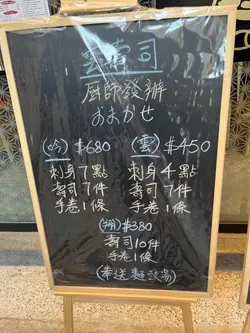 雲壽司
廚師發辦
おまかせ
(吟) $680
刺身7點
壽司7件
手卷1條
(雲) $450
刺身4點
壽司7件
手卷1條
$380
壽司10件
手卷1條
(奉送麵豉湯)